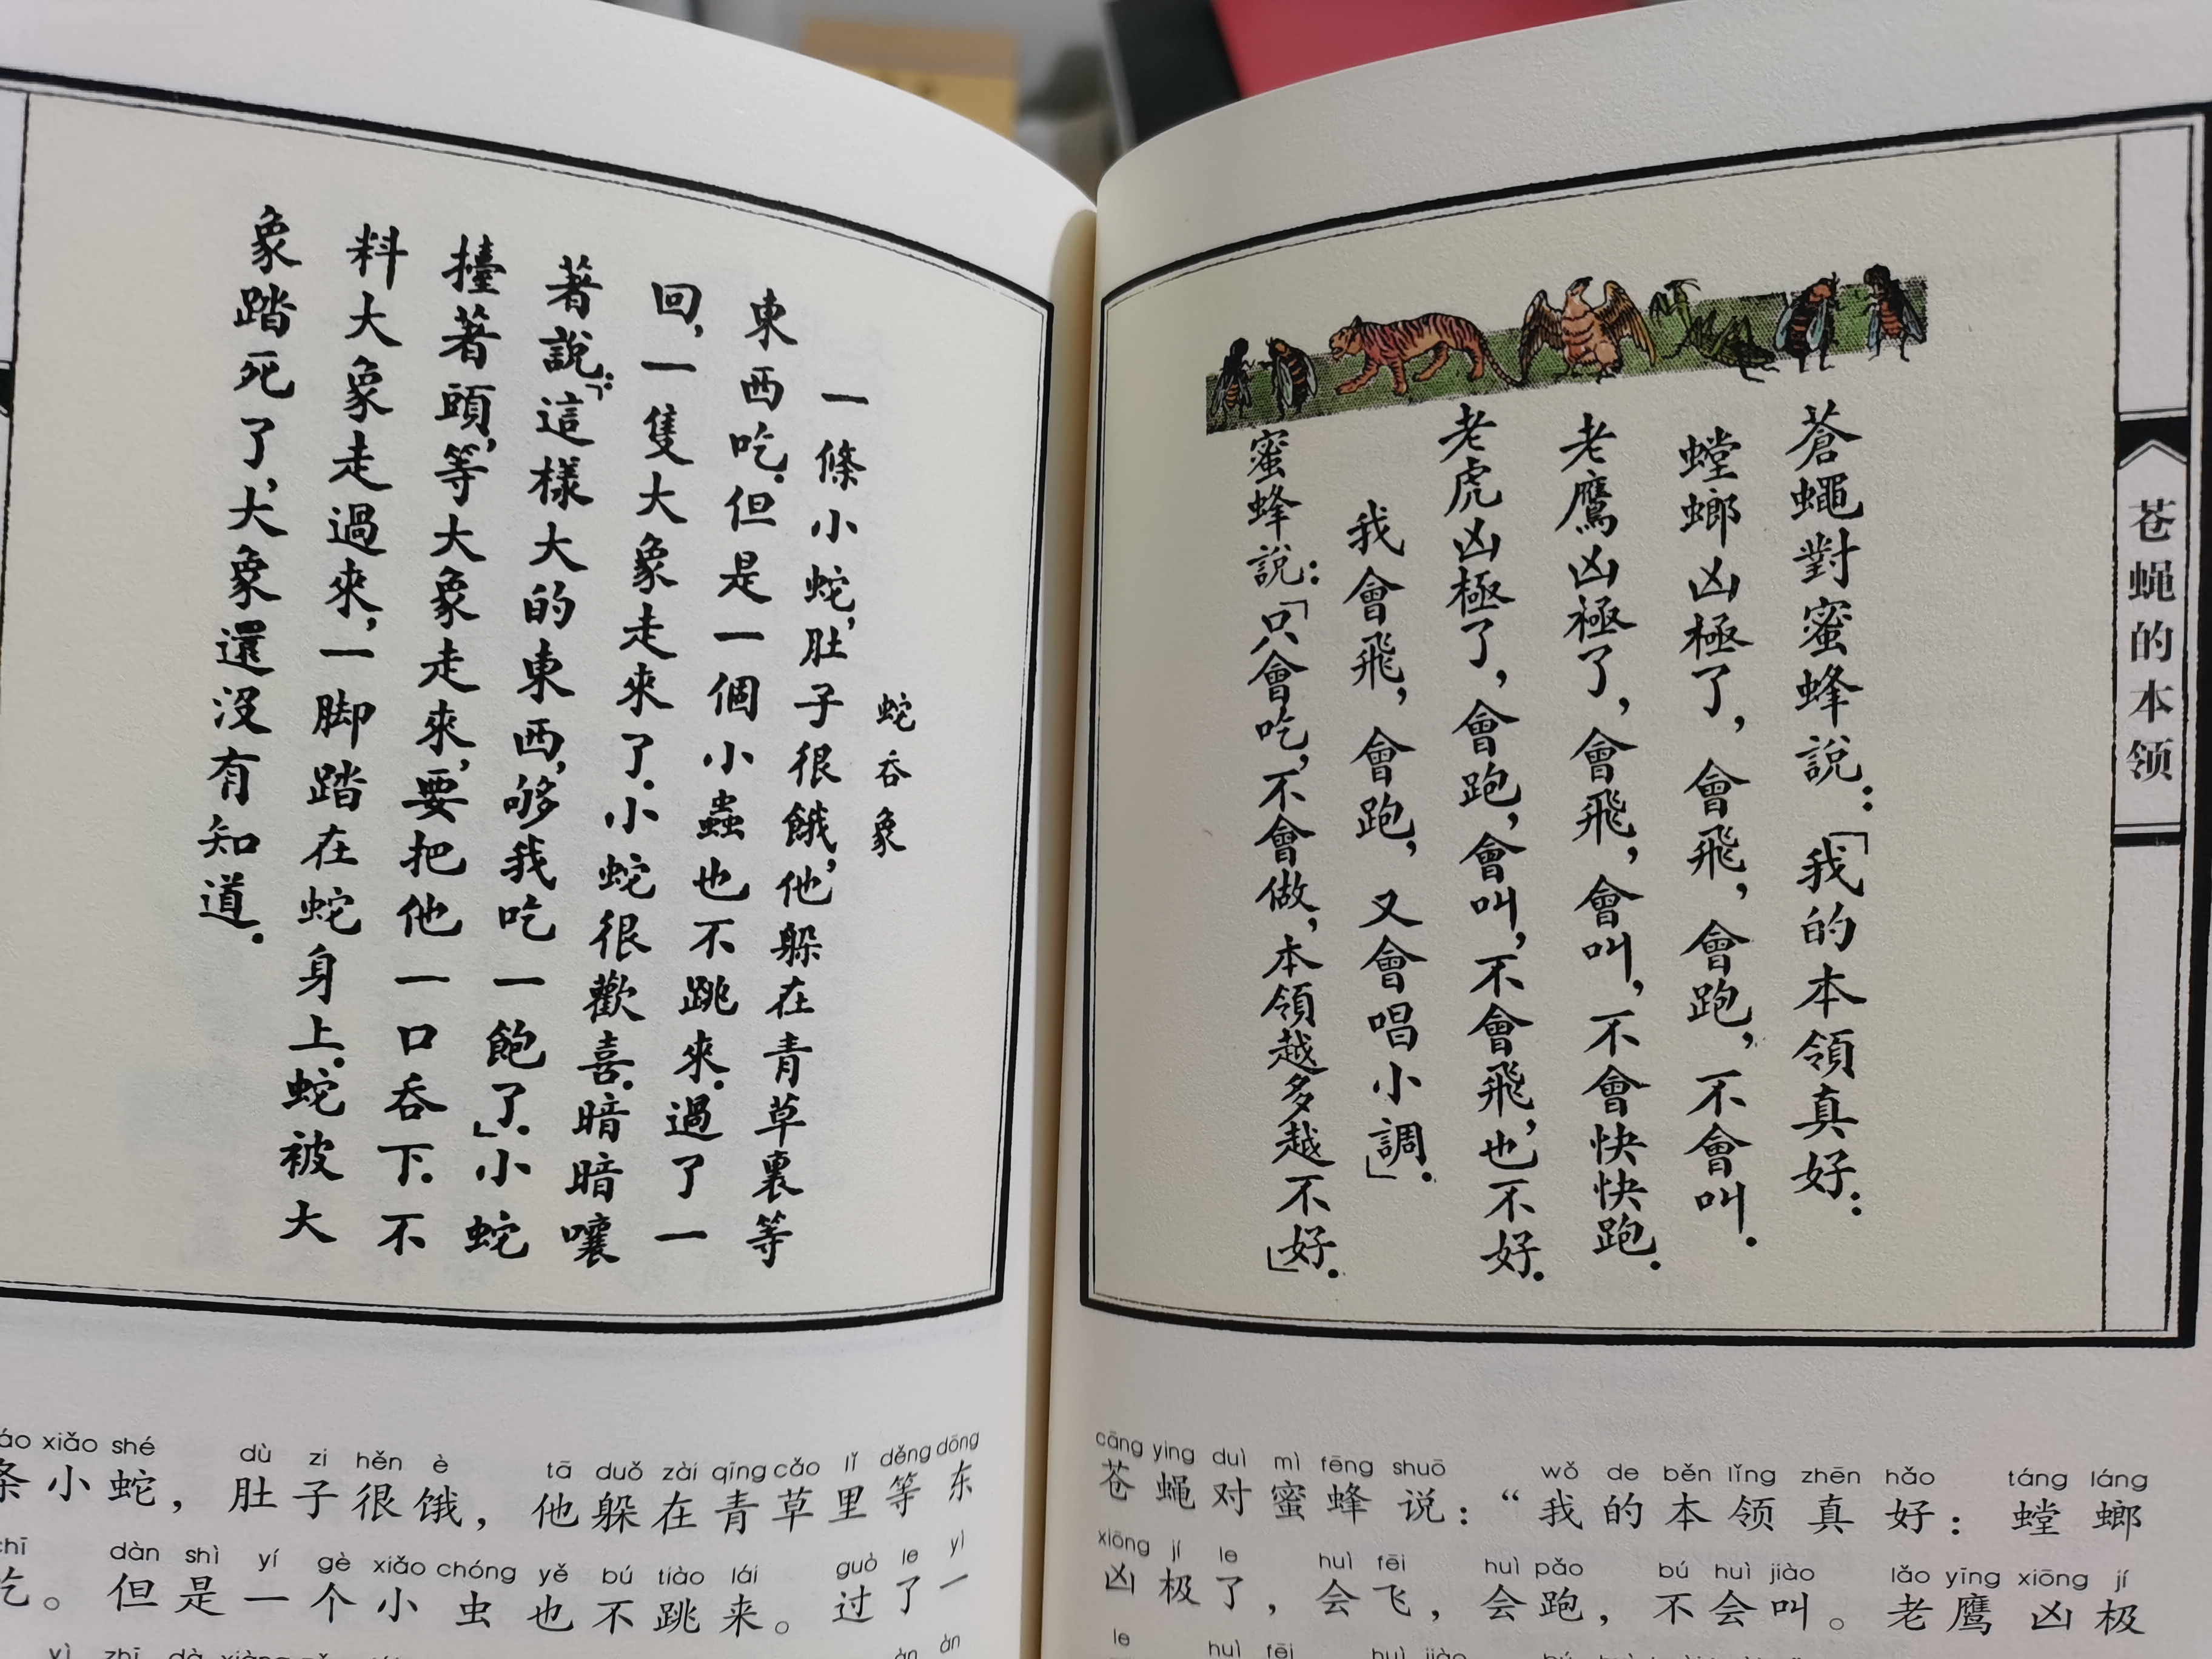 苍蝇的本领
蒼蠅對蜜蜂說：「我的本領真好：
螳螂凶極了，會飛，會跑，不會叫．
老鷹凶極了，會飛，會叫，不會快快跑．
老虎凶極了，會跑，會叫，不會飛，也不好．
我會飛，會跑，又會唱小調」．
蜜蜂說：「只會吃，不會做，本領越多越不好」．
cāng ying duì mì fēng shuō wǒ de běn lǐng zhēn hǎo táng láng
苍蝇对蜜蜂说：“我的本领真好：螳螂
xiōng jí le huì fēi huì pǎo bú huì jiào lǎo yīng xiōng jí
凶极了，会飞，会跑，不会叫。老鹰凶极
le huì fēi huì jiào
蛇吞象
一條小蛇，肚子很餓，他躲在青草裏等
東西吃．但是一個小蟲也不跳來．過了一
回，一隻大象走來了．小蛇很歡喜．暗暗嚷
著說：「這樣大的東西，够我吃一飽了．」小蛇
擡著頭，等大象走來，要把他一口吞下．不
料大象走過來，一脚踏在蛇身上．蛇被大
象踏死了，大象還沒有知道．
xiǎo shé dù zi hěn è tā duǒ zài qīng cǎo lǐ děng dōng
条小蛇，肚子很饿，他躲在青草里等东
chī dàn shì yí gè xiǎo chóng yě bú tiào lái guò le yì
吃。但是一个小虫也不跳来。过了一
yì zhī dà xiàng